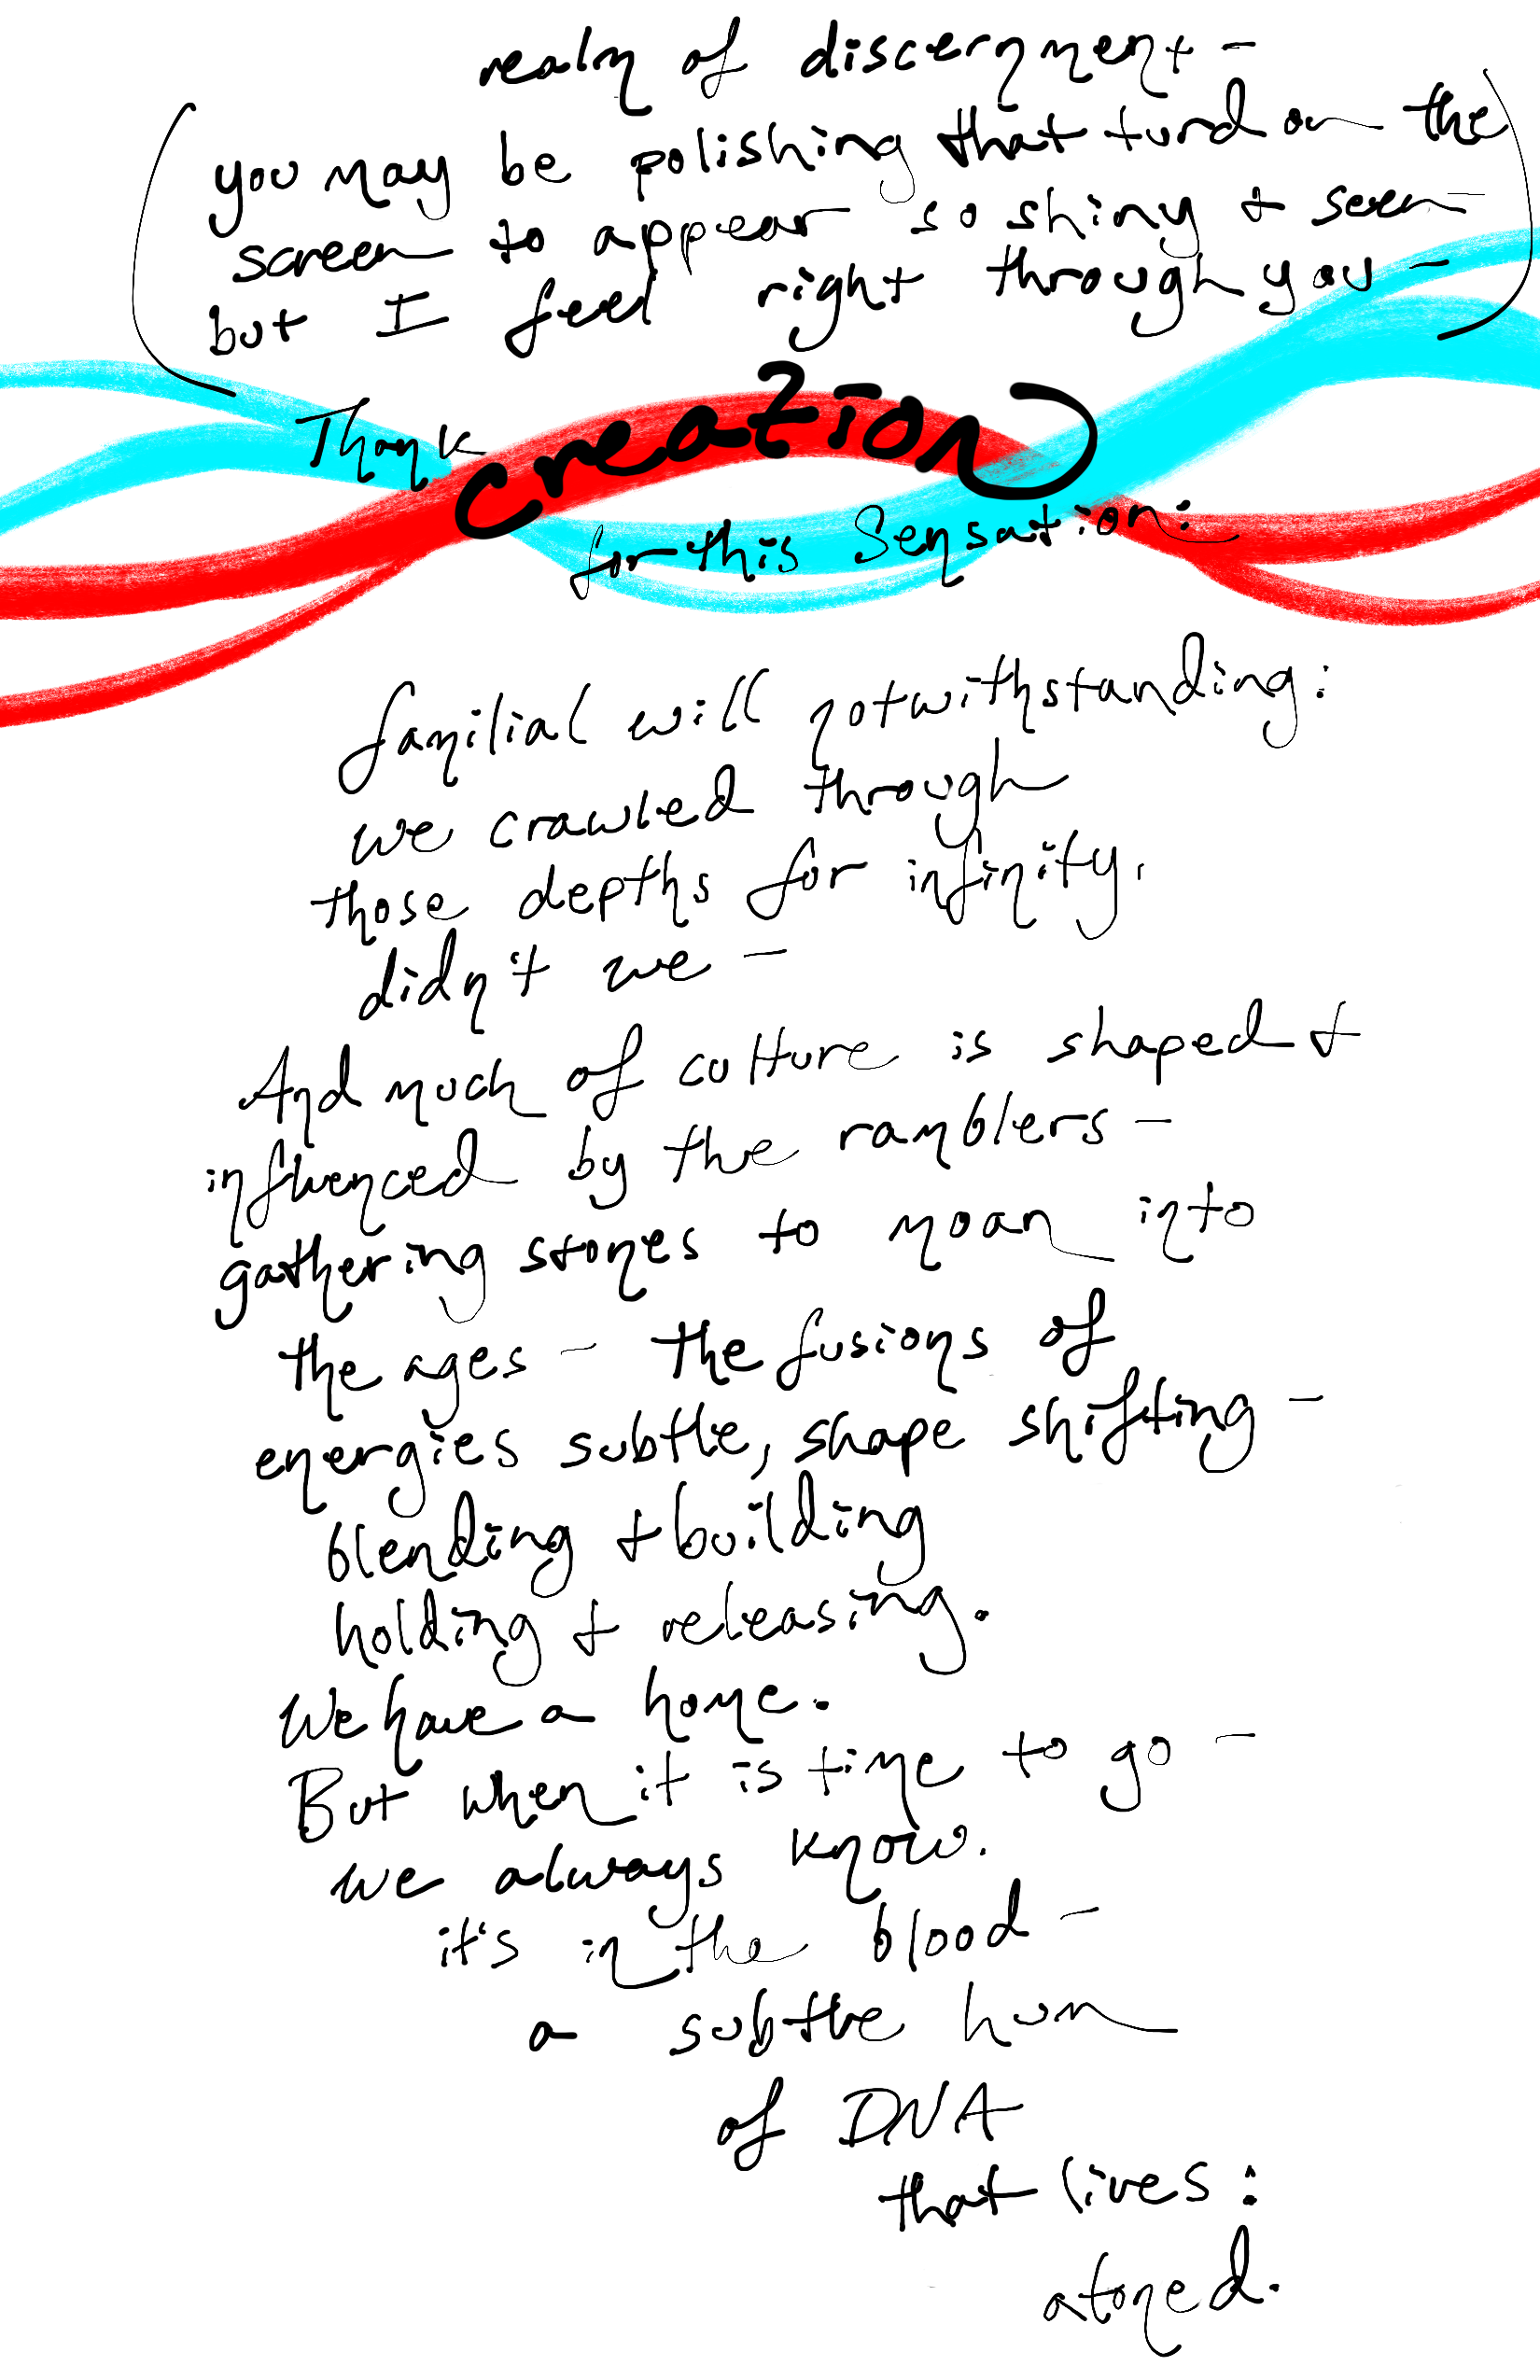 realm of discernment –
(you may be polishing that turd on the
screen to appear so shiny + seen –
but I feel right through you –)
Thank
creation
for this Sensation:
familial will notwithstanding:
we crawled through
those depths for infinity,
didn't we –
And much of culture is shaped +
influenced by the ramblers –
gathering stones to moan into
the ages – the fusions of
energies subtle, shape shifting –
blending + building
holding + releasing.
We have a home.
But when it is time to go –
we always know.
it's in the blood –
a subtle hum
of DNA
that lives:
atoned.